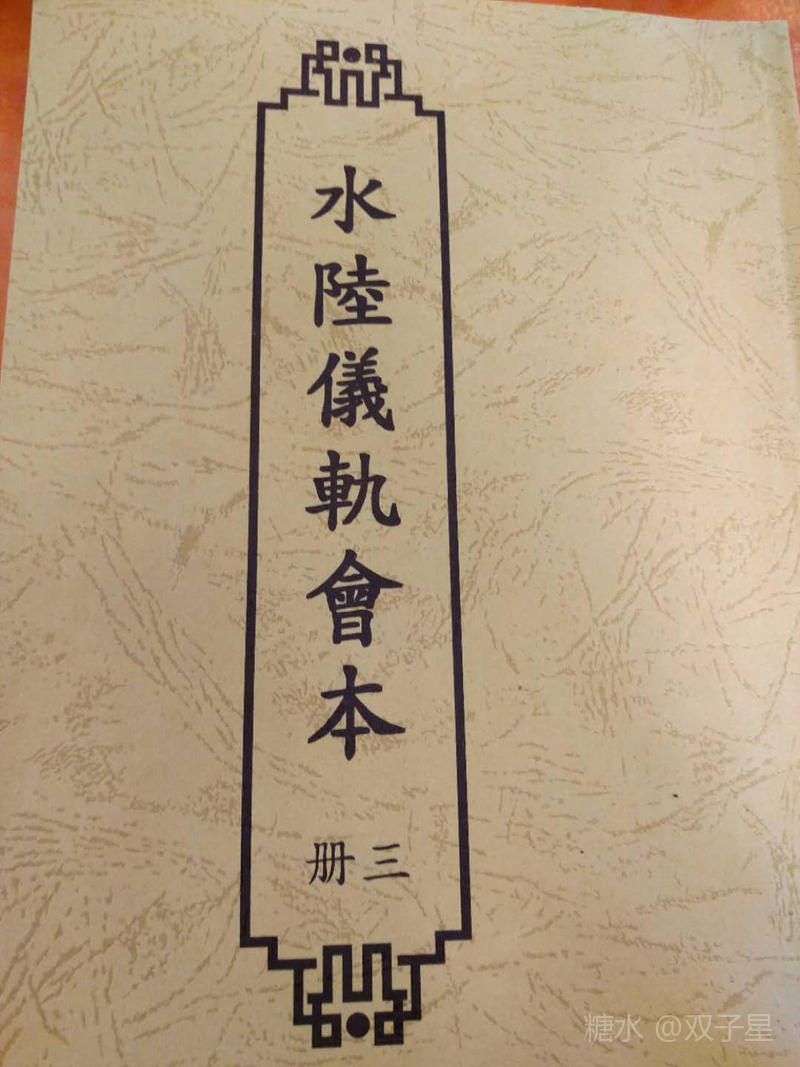 水陸儀軌會本
三册
糖水 @双子星